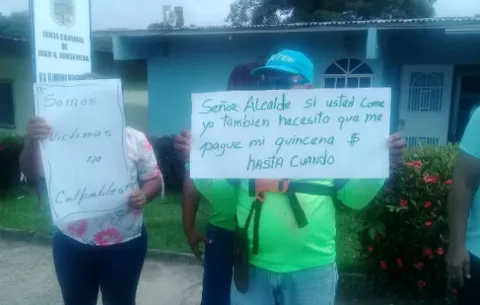 JUNTA COMUNAL
DE
Somos
Victimas
no
Culpables
Señor Alcalde si usted come
yo tambien necesito que me
pague mi quincena $
HASTA CUANDO